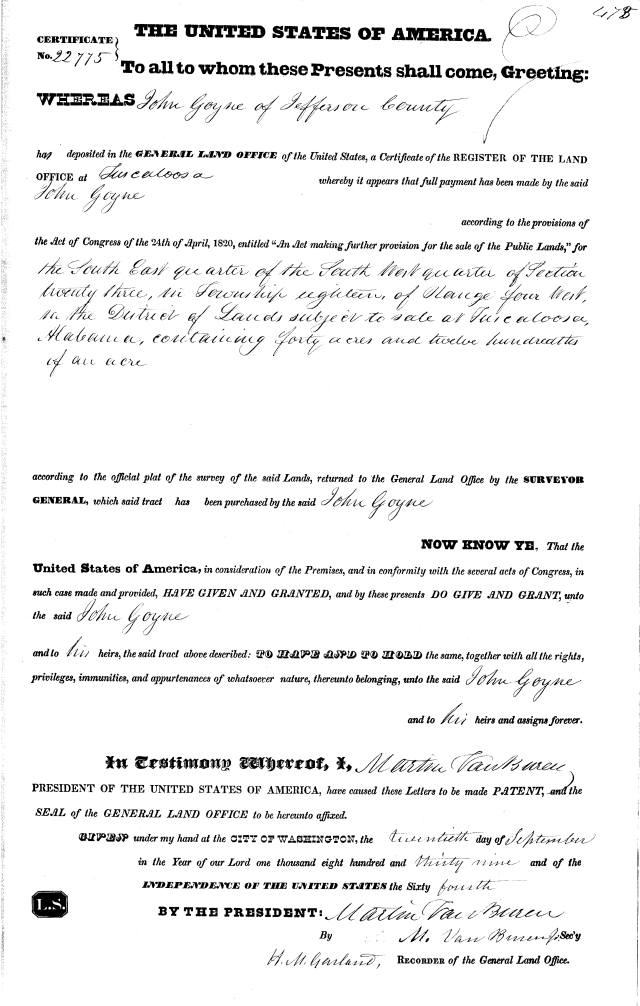 478
THE UNITED STATES OF AMERICA.
CERTIFICATE
No. 22775
To all to whom these Presents shall come, Greeting:
WHEREAS John Goyne of Jefferson County
has deposited in the GENERAL LAND OFFICE of the United States, a Certificate of the REGISTER OF THE LAND
OFFICE at Tuscaloosa whereby it appears that full payment has been made by the said
John Goyne
according to the provisions of
the Act of Congress of the 24th of April, 1820, entitled "An Act making further provision for the sale of the Public Lands," for
the South East quarter of the South West quarter of Section
twenty three, in Township eighteen, of Range four West,
in the District of Lands subject to sale at Tuscaloosa,
Alabama, containing forty acres and twelve hundredths
of an acre
according to the official plat of the survey of the said Lands, returned to the General Land Office by the SURVEYOR
GENERAL, which said tract has been purchased by the said John Goyne
NOW KNOW YE, That the
United States of America, in consideration of the Premises, and in conformity with the several acts of Congress, in
such case made and provided, HAVE GIVEN AND GRANTED, and by these presents DO GIVE AND GRANT, unto
the said John Goyne
and to his heirs, the said tract above described: TO HAVE AND TO HOLD the same, together with all the rights,
privileges, immunities, and appurtenances of whatsoever nature, thereunto belonging, unto the said John Goyne
and to his heirs and assigns forever.
In Testimony Whereof, I, Martin Van Buren
PRESIDENT OF THE UNITED STATES OF AMERICA, have caused these Letters to be made PATENT, and the
SEAL of the GENERAL LAND OFFICE to be hereunto affixed.
GIVEN under my hand at the CITY OF WASHINGTON, the twentieth day of September
in the Year of our Lord one thousand eight hundred and thirty nine and of the
INDEPENDENCE OF THE UNITED STATES the Sixty fourth
L.S.
BY THE PRESIDENT: Martin Van Buren
By M. Van Buren Jr. Sec'y
H. M. Garland, RECORDER of the General Land Office.